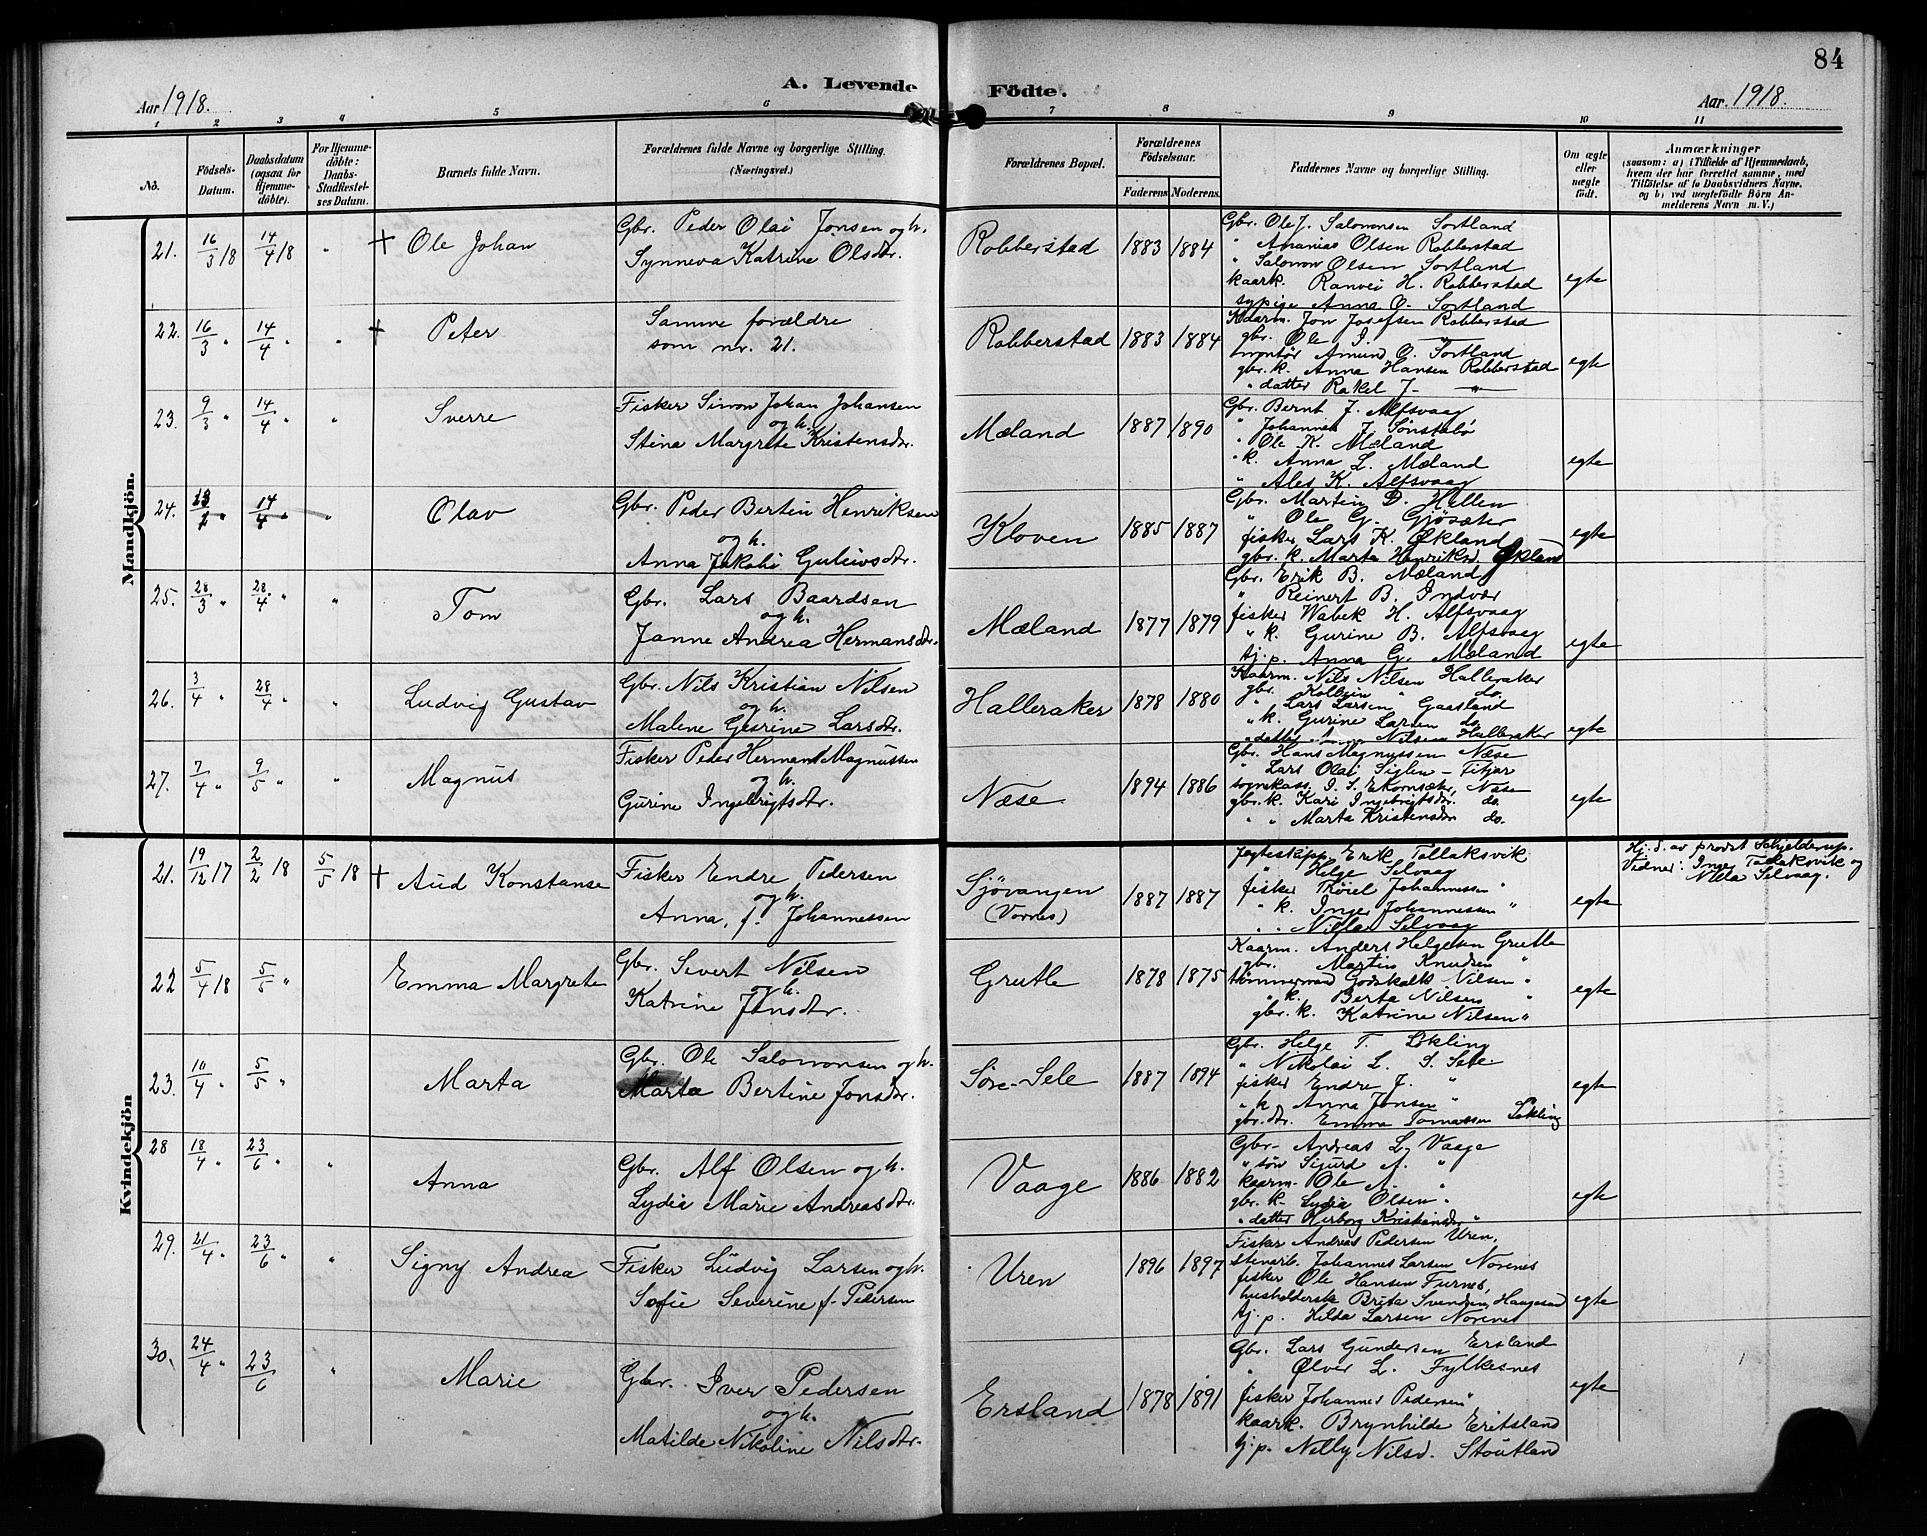 84
A. Levende Födte.
Aar 1918.
Aar. 1918.
1 2 3 4 5 6 7 8 9 10 11
No.
Födsels-Datum.
Daabsdatum (ogsaa for Hjemme-döbte).
For Hjemme-döbte: Daabs-Stadfæstel-ses Datum.
Barnets fulde Navn.
Forældrenes fulde Navne og borgerlige Stilling. (Næringsvei.)
Forældrenes Bopæl.
Forældrenes Födselsaar.
Faderens. Moderens.
Faddernes Navne og borgerlige Stilling.
Om ægte eller uægte födt.
Anmærkninger
(saasom: a) i Tilfælde af Hjemmedaab, hvem der har forrettet samme, med Tilföielse af to Daabsvidners Navne, og b) ved uægtefödte Börn An-melderens Navn m. V.)
Mandkjön.
21. 16/3 18 14/4 18 " + Ole Johan
Gbr. Peder Olai Jonsen og h.
Synneva Katrine Olsdtr.
Robberstad 1883 1884
Gbr. Ole J. Salomonsen Sortland
" Ananias Olsen Robberstad
" Salomon Olsen Sortland
kaark. Ranvei H. Robberstad
sypige Anna O. Sortland
egte
22. 16/3 " 14/4 " " + Peter
Samme forældre
som nr. 21.
Robberstad 1883 1884
Kaarm. Jon Josefsen Robberstad
gbr. Ole J. —
Amund O. Sortland
gbr. k. Anna Hansen Robberstad
" datter Rakel J. — " —
egte
23. 9/3 " 14/4 " " Sverre
Fisker Simon Johan Johansen
og h.
Stina Margrete Kristensdtr.
Mæland 1887 1890
Gbr. Bernt J. Alfsvaag
" Johannes J. Sönstabö
" Ole K. Mæland
" k. Anna L. Mæland
" Ales K. Alfsvaag
egte
24. 14/4 " " Olav
Gbr. Peder Bertin Henriksen
og h.
Anna Jakobi Guleivsdtr.
Kloven 1885 1887
Gbr. Martin D. Hellen
" Ole G. Gjösæter
fisker Lars K. Økland
gbr. k. Marta Henriksd. Økland
egte
25. 28/3 " 28/4 " " Tom
Gbr. Lars Baardsen
og h.
Janne Andrea Hermansdtr.
Mæland 1877 1879
Gbr. Erik B. Mæland
" Reinert B. Indvær
fisker Wabek H. Alfsvaag
" k. Gurine B. Alfsvaag
tj. p. Anna G. Mæland
egte
26. 3/4 " 28/4 " " Ludvig Gustav
Gbr. Nils Kristian Nilsen
og h.
Malene Gurine Larsdtr.
Halleraker 1878 1880
Kaarm. Nils Nilsen Halleraker
gbr. Kolbein " do.
" Lars Larsen Gaasland
" k. Gurine Larsen do.
" datter Nilsen Halleraker
egte
27. 7/4 " 9/5 " " Magnus
Fisker Peder Herman Magnussen
og h.
Gurine Ingebrigtsdtr.
Næse 1894 1886
Gbr. Hans Magnussen Næse
" Lars Olai Siglen - Fitjar
sognekass. I. S. Ekornsæter, Næse
gbr. k. Kari Ingebrigtsdtr. do.
" " Marta Kristensdtr do.
egte
Kvindekjön
21. 19/12 17 2/2 18 5/5 18 + Aud Konstanse
Fisker Endre Pedersen
og h.
Anna, f. Johannessen
Sjövangen
(Vornes)
1887 1887
Jegteskipp. Erik Tollaksvik
" Helge Selvaag
fisker Tröiel Johannessen "
" k. Inger Johannessen "
" " Nilla Selvaag
egte
Hj. d. av provst Schjelderup.
Vidner: Inger Tollaksvik og
Nilla Selvaag.
22 5/4 18 5/5 " Emma Margrete
Gbr. Sivert Nilsen
og h.
Katrine Jonsdtr.
Grutle 1878 1875
Kaarm. Anders Helgesen Grutle
gbr. Martin Knudsen "
tömmermand Godskalk Nilsen "
" k. Berta Nilsen "
gbr. k. Katrine Nilsen "
egte
23. 10/4 " 5/5 " Marta
Gbr. Ole Salomonsen og h.
Marta Bertine Jonsdtr.
Söre-Sele 1887 1894
Gbr. Helge T. Lökling
" Nikolai L. S. Sele
fisker Endre J. "
" k. Anna Jonsen "
gbr. dtr. Emma Tomassen Lökling
egte
28 18/4 " 23/6 " " Anna
Gbr. Alf Olsen og h.
Lydia Marie Andreasdtr.
Vaage 1886 1882
Gbr. Andreas L. Vaage
" sön Sigurd A. "
kaarm. Ole A. "
gbr. k. Lydia Olsen "
" datter Herborg Kristiansdtr "
egte
29. 21/4 " 23/6 " " Signy Andrea
Fisker Ludvig Larsen og h.
Sofie Severine f. Pedersen
Uren 1896 1897
Fisker Andreas Pedersen Uren,
Stenarb. Johannes Larsen Norenes
fisker Ole Hansen Furnes,
husholdersk Brita Svendsen, Haugesund
tj. p. Hilda Larsen Norenes
egte
30. 24/4 " 23/6 " Marie
Gbr. Iver Pedersen
og h.
Matilde Nikoline Nilsdtr.
Ersland 1878 1891
Gbr. Lars Gundersen Ersland
" Ølver L. Fylkesnes
fisker Johannes Pedersen "
kaark. Brynhilde Eritsland
tj. p. Nelly Nilsd. Stoutland
egte